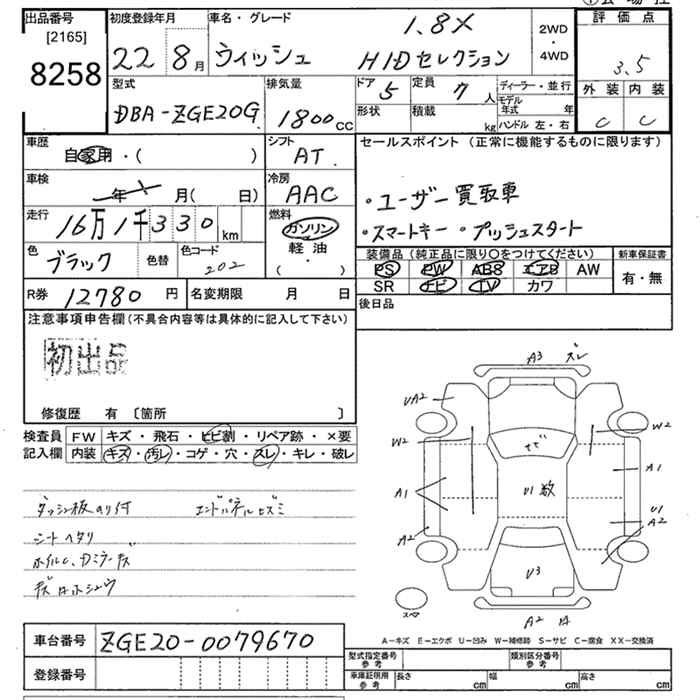 出品番号
[2165]
8258
初度登録年月
22 8月
車名・グレード
1.8X
ウィッシュ HIDセレクション
2WD
・
4WD
評価点
3.5
外装 内装
C C
型式
DBA-ZGE20G
排気量
1800cc
ドア 5
定員 7人
形状
積載 kg
ディーラー・並行
モデル年式 年
ハンドル 左・右
車歴
自家用・( )
シフト
AT
車検
年 月( 日)
冷房
AAC
走行
16万1千330km
燃料
ガソリン
軽油
( ・ )
色
ブラック
色替
色コード
202
R券 12780円
名変期限 月 日
セールスポイント(正常に機能するものに限ります)
・ユーザー買取車
・スマートキー ・プッシュスタート
装備品(純正品に限り○をつけてください)
PS PW ABS エアB AW
SR ナビ TV カワ
新車保証書
有・無
後日品
注意事項申告欄(不具合内容等は具体的に記入して下さい)
初出品
修復歴 有〔箇所 〕
検査員記入欄
FW キズ・飛石・ヒビ割・リペア跡・×要
内装 キズ・汚レ・コゲ・穴・スレ・キレ・破レ
ダッシュ板のり付 エンドパネルヒズミ
シートヘタリ
A3 ズレ
UA2
W2
W2
A1
A1
U1
A2
A2
サビ
U1 数
U3
A2
スペア
A-キズ E-エクボ U-凹み W-補修跡 S-サビ C-腐食 XX-交換済
車台番号 ZGE20-0079670
登録番号
型式指定番号参考
類別区分番号参考
車庫証明用参考
長さ cm
幅 cm
高さ cm